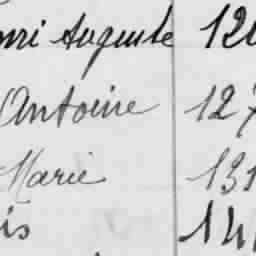 nri Auguste 120
Antoine 127
Marie 131
is 141